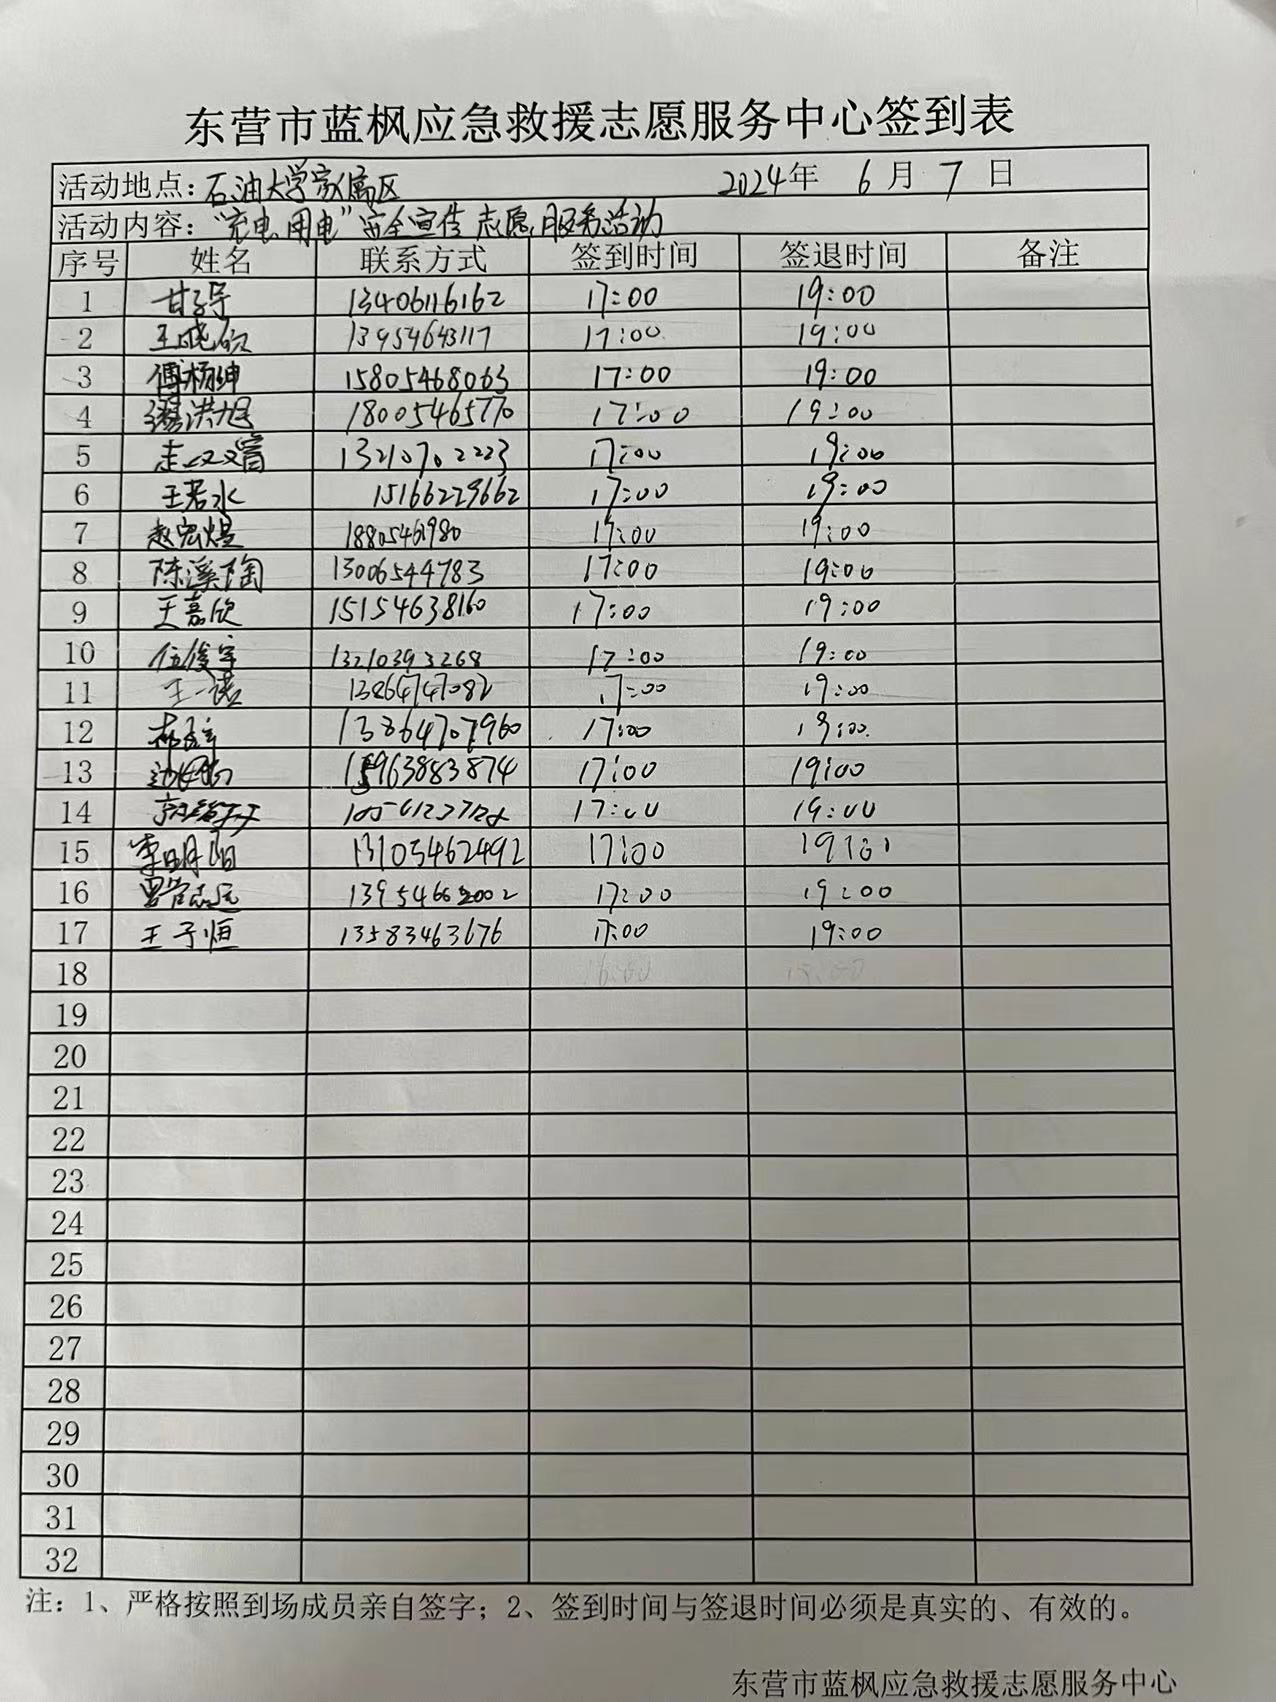 东营市蓝枫应急救援志愿服务中心签到表
活动地点：石油大学家属区 2024年 6月 7日
活动内容：“充电、用电”安全宣传志愿服务活动
序号 姓名 联系方式 签到时间 签退时间 备注
1 13406116162 17:00 19:00
2 王晓欣 13954643117 17:00 19:00
3 傅杨绅 15805468063 17:00 19:00
4 洪旭 18005465770 17:00 19:00
5 13210702223 17:00 19:00
6 王若水 15166229662 17:00 19:00
7 赵宏煜 18805461980 17:00 19:00
8 陈溪陶 13006544783 17:00 19:00
9 王嘉欣 15154638160 17:00 19:00
10 伍俊宇 13210393268 17:00 19:00
11 王一诺 13864747082 17:00 19:00
12 13864707960 17:00 19:00
13 15963883874 17:00 19:00
14 17:00 19:00
15 李明阳 13105462492 17:00
16 17:00 19:00
17 王子恒 13583463676 17:00 19:00
18
19
20
21
22
23
24
25
26
27
28
29
30
31
32
注：1、严格按照到场成员亲自签字；2、签到时间与签退时间必须是真实的、有效的。
东营市蓝枫应急救援志愿服务中心